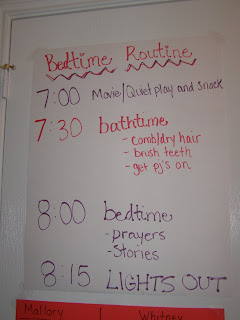 Bedtime Routine
7:00 Movie/Quiet play and Snack
7:30 bathtime
- comb/dry hair
- brush teeth
- get pj's on
8:00 bedtime
- prayers
- stories
8:15 LIGHTS OUT
Mallory Whitney